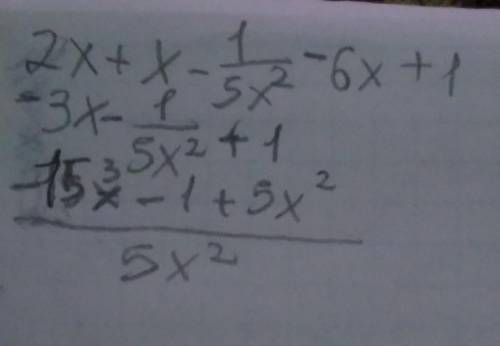 2x + x - 1/5x² - 6x + 1
-3x - 1/5x² + 1
-15x³ - 1 + 5x²
5x²